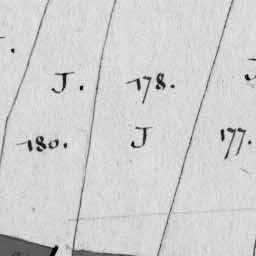 J. 178.
180. J 177.